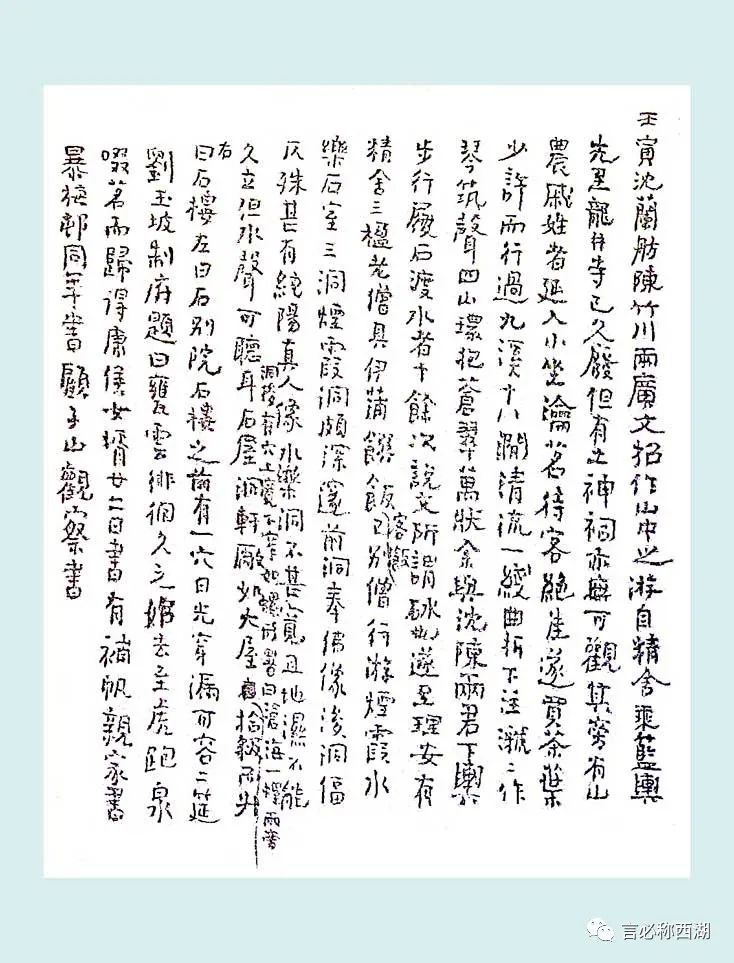 壬寅沈蘭舫陳竹川兩廣文招作山中之游自精舍乘籃輿
先至龍井寺已久廢但有土神祠亦無可觀其旁有山
農戚姓者延入小坐瀹茗待客絕佳遂買茶葉
少許而行過九溪十八澗清流一綫曲折下注潺二作
琴筑聲四山環抱蒼翠萬狀余與沈陳兩君下輿
步行履石渡水者十餘次說文所謂砅也遂至理安有
精舍三楹老僧具伊蒲饌飯客飯已別僧行游煙霞水
樂石室三洞煙霞洞頗深邃前洞奉佛像後洞偪
仄殊甚有純陽真人像水樂洞不甚寬且地濕不能
久立但水聲可聽耳石屋洞軒敞如大屋拾級而升
洞後有穴上寬下窄如螺形署曰滄海一螺兩旁
右曰石樓左曰石別院石樓之前有一穴日光穿漏可容二筵
劉玉坡制府題曰甕雲徘徊久之始去至虎跑泉
啜茗而歸得康侯女壻廿二日書有補帆親家書
暴梅郵同年書顧子山觀察書
言必称西湖